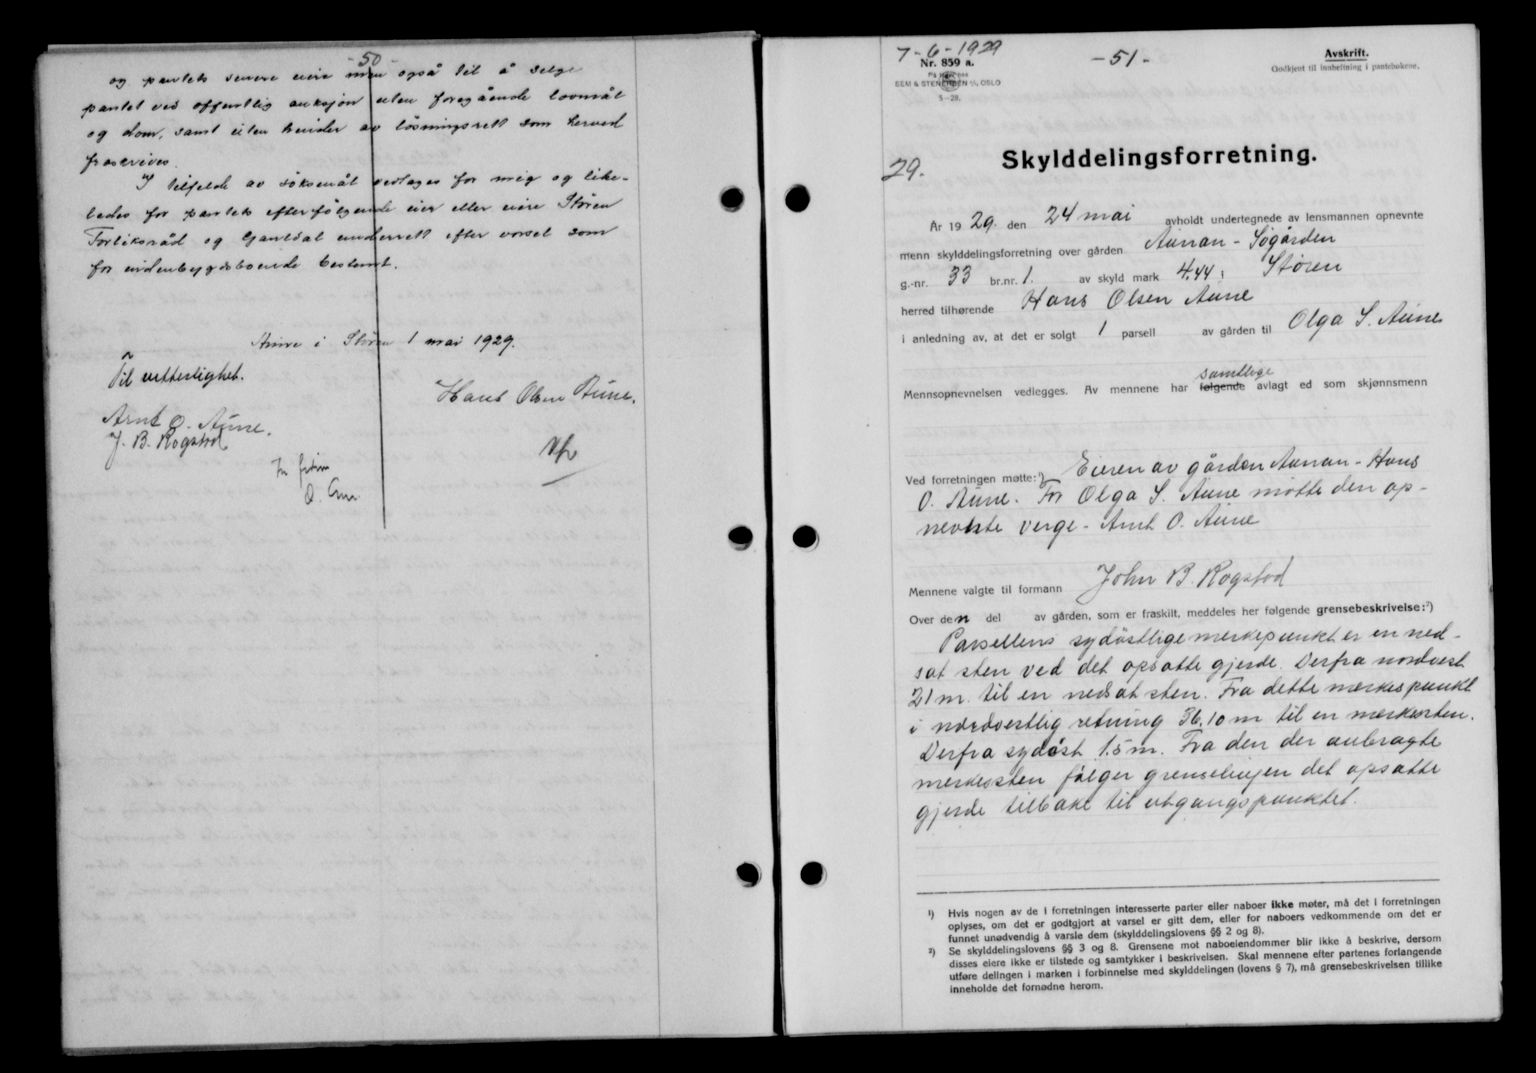 - 50 -
og pantets senere eiere men også til å selge
pantet ved offentlig auksjon uten foregående lovmål
og dom, samt uten hinder av løsningsrett som herved
frascrives.
I tilfelde av søksmål vedtages for mig og like-
ledes for pantets efterfølgende eier eller eiere Støren
Forliksråd og Gauldal underrett efter varsel som
for indenbygdsboende bestemt.
Aune i Støren 1 mai 1929.
Til vitterlighet.
Hans Olsen Aune.
Arnt O. Aune.
J. B. Rogstad
7-6-1929
Nr. 859 a.
SEM & STENERSEN A/S, OSLO
5-28.
- 51 -
Avskrift.
Godkjent til innheftning i pantebøkene.
29.
Skylddelingsforretning.
År 1929. den 24 mai avholdt undertegnede av lensmannen opnevnte
menn skylddelingsforretning over gården Aunan - Søgården
g.-nr. 33 br.nr. 1. av skyld mark 4.44 i Støren
herred tilhørende Hans Olsen Aune
i anledning av, at det er solgt 1 parsell av gården til Olga S. Aune
samtlige
Mennsopnevnelsen vedlegges. Av mennene har følgende avlagt ed som skjønnsmenn
Ved forretningen møtte:¹) Eieren av gården Aunan - Hans
O. Aune. For Olga S. Aune møtte den op-
nevnte verge - Arnt O. Aune
Mennene valgte til formann John B. Rogstad
Over den del av gården, som er fraskilt, meddeles her følgende grensebeskrivelse:²)
Parsellens sydøstlige merkepunkt er en ned-
sat sten ved det opsatte gjerde. Derfra nordvest
21 m. til en nedsat sten. Fra dette merkespunkt
i nordvestlig retning 36,10 m til en merkesten.
Derfra sydøst 1.5 m. Fra den der anbragte
merkessten følger grenselinjen det opsatte
gjerde tilbake til utgangspunktet.
¹) Hvis nogen av de i forretningen interesserte parter eller naboer ikke møter, må det i forretningen
oplyses, om det er godtgjort at varsel er gitt dem, eller for naboers vedkommende om det er
funnet unødvendig å varsle dem (skylddelingslovens §§ 2 og 8).
²) Se skylddelingslovens §§ 3 og 8. Grensene mot naboeiendommer blir ikke å beskrive, dersom
disses eiere ikke er tilstede og samtykker i beskrivelsen. Skal mennene efter partenes forlangende
utføre delingen i marken i forbinnelse med skylddelingen (lovens § 7), må grensebeskrivelsen tillike
inneholde det fornødne herom.